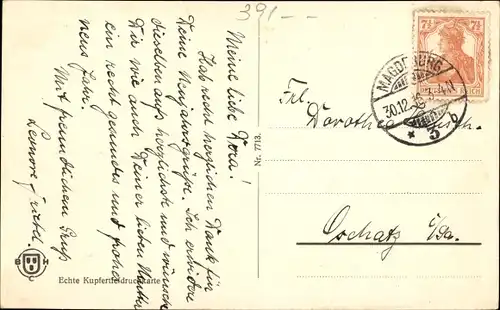 391--
Meine liebe Dora!
Hab recht herzlichen Dank für
Deine Neujahrsgrüße. Ich erwidere
dieselben aufs herzlichste und wünsche
Dir wie auch Deiner lieben Mutter
ein recht gesundes und frohes
neues Jahr.
Mit freundlichem Gruß
Leonore
B H
Echte Kupfertiefdruckkarte
Nr. 7713.
7½ 7½
DEUTSCHES REICH
MAGDEBURG
30.12.
* 3 b
Frl.
Dorothea
Oschatz i/Sa.